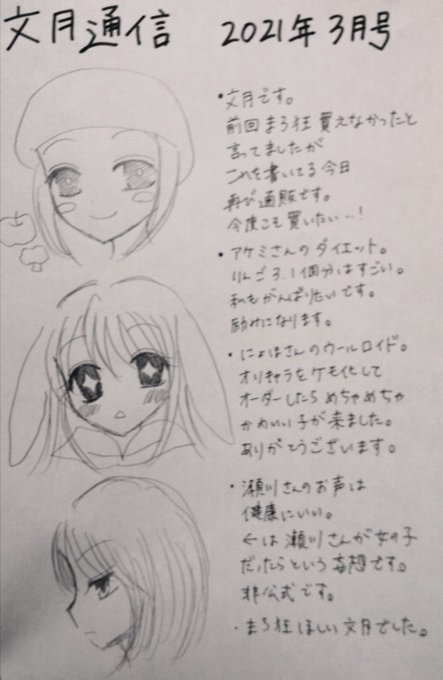 文月通信 2021年3月号
・文月です。
前回まろ狂買えなかったと
言ってましたが
これを書いてる今日
再び通販です。
今度こそ買いたい…!
・アケミさんのダイエット。
りんご3.1個分はすごい。
私もがんばりたいです。
励みになります。
・にょはさんのウールロイド。
オリキャラをケモ化して
オーダーしたらめちゃめちゃ
かわいい子が来ました。
ありがとうございます。
・瀬川さんのお声は
健康にいい。
←は瀬川さんが女の子
だったらという妄想です。
非公式です。
・まろ狂ほしい文月でした。